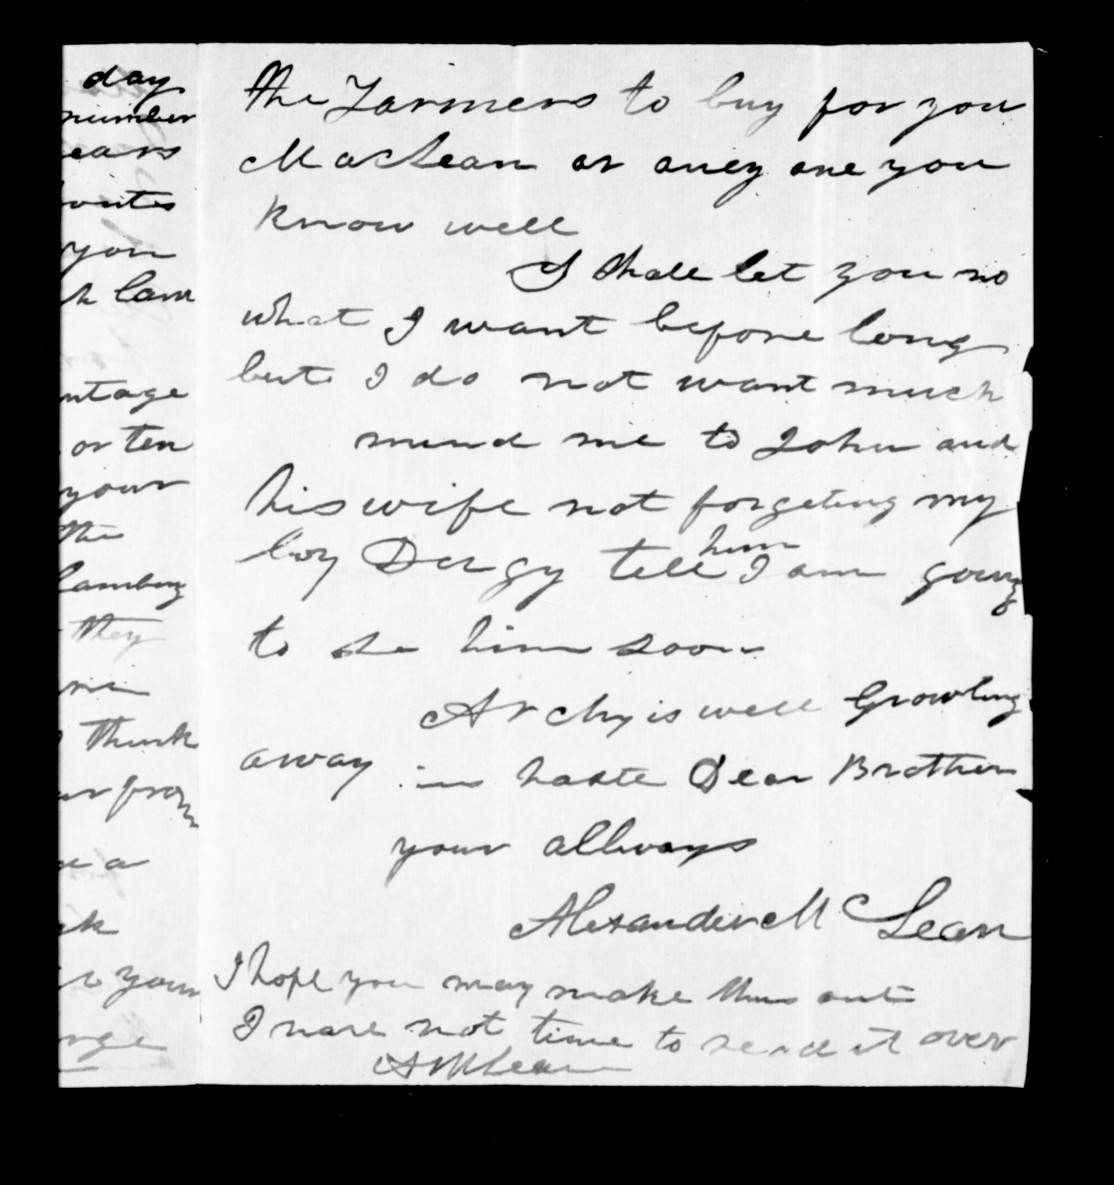 day
number
ears
outes
you
k lam
ntage
or ten
your
the
lambing
they
me
think
ur from
e a
ck
r your
nge
the Farmers to buy for you
MacLean or aney one you
know well
I shall let you no
what I want before long
but I do not want much
mind me to John and
his wife not forgeting my
boy Dugy tell him I am going
to se him soon
Archy is well Growling
away in haste Dear Brother
your allways
Alexander McLean
I hope you may make this out
I have not time to read it over
A McLean